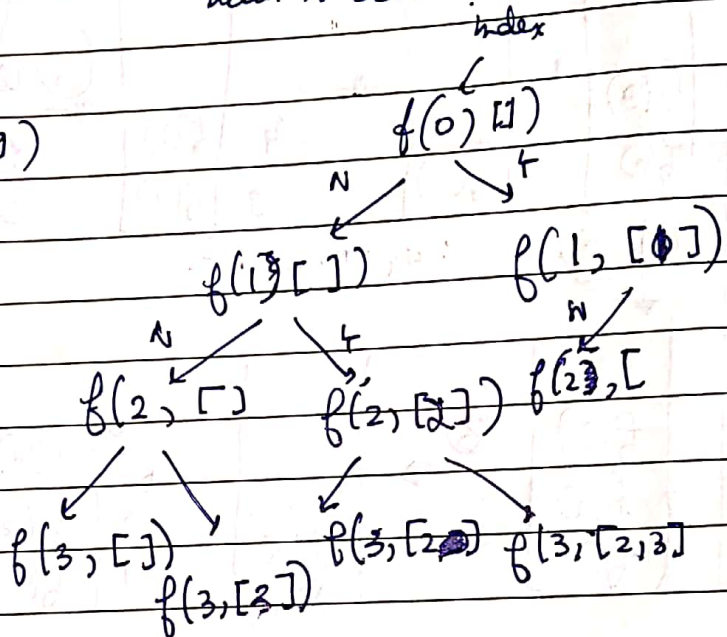 index
f(0, [])
N Y
f(1, []) f(1, [1])
N Y N
f(2, [] f(2, [2]) f(2, [
f(3, []) f(3, [2 f(3, [2,3]
f(3, [3])